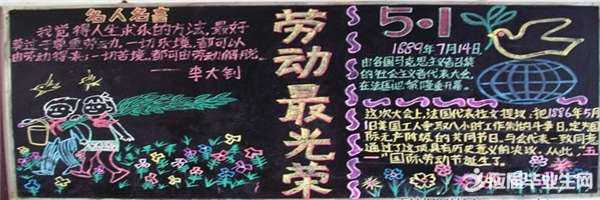 名人名言
我觉得人生求乐的方法,最好
莫过于尊重劳动。一切乐境,都可以
由劳动得来,一切苦境,都可由劳动解脱。
——李大钊
劳动最光荣
5·1
1889年7月14日,
由各国马克思主义者召集
的社会主义者代表大会,
在法国巴黎隆重开幕。
这次大会上,法国代表拉文提议,把1886年5月
1日美国工人争取八小时工作制的斗争日,定为国
际无产阶级的共同节日。与会代表一致同意,
通过了这项具有历史意义的决议。从此,“五
一”国际劳动节诞生了。
应届毕业生网